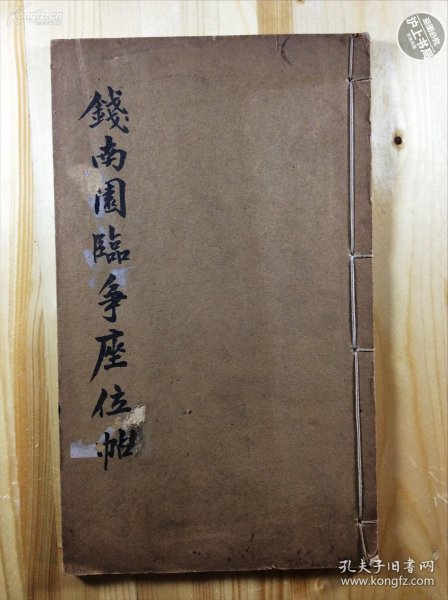 錢南園臨爭座位帖
孔夫子旧书网
www.kongfz.com
沪上书房